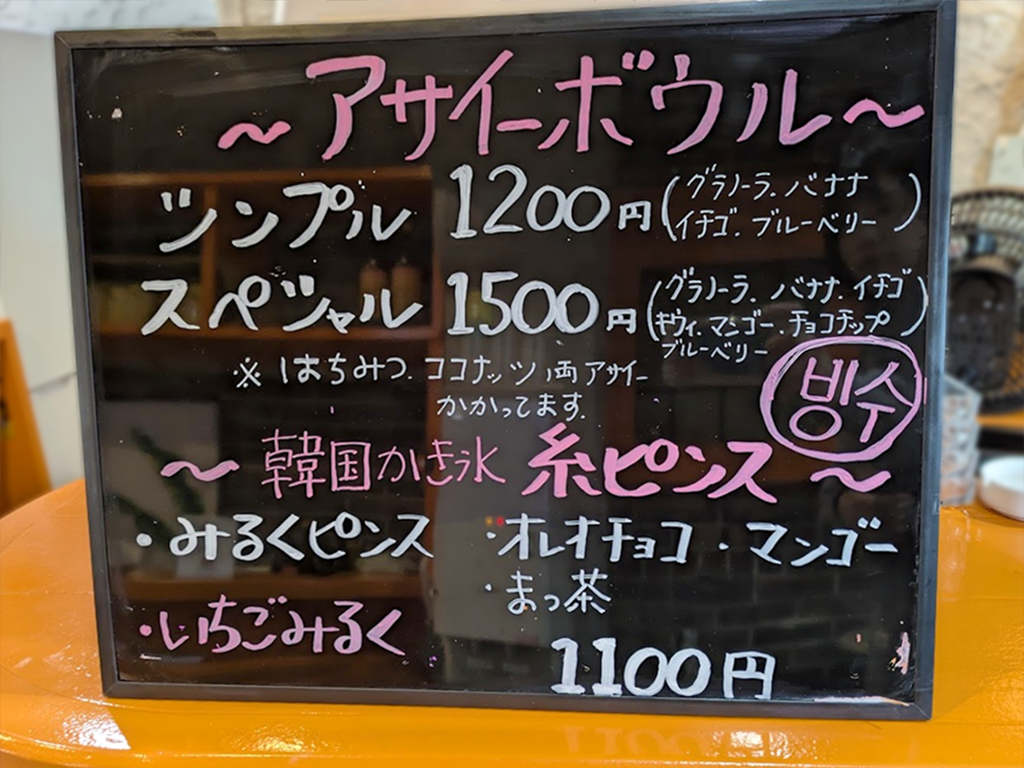 ～アサイーボウル～
シンプル 1200円 (グラノーラ、バナナ
イチゴ、ブルーベリー)
スペシャル 1500円 (グラノーラ、バナナ、イチゴ
キウィ、マンゴー、チョコチップ
ブルーベリー)
※ はちみつ、ココナッツ両アサイー
かかってます。
빙수
～韓国かき氷 糸ピンス～
・みるくピンス ・オレオチョコ ・マンゴー
・まっ茶
・いちごみるく
1100円